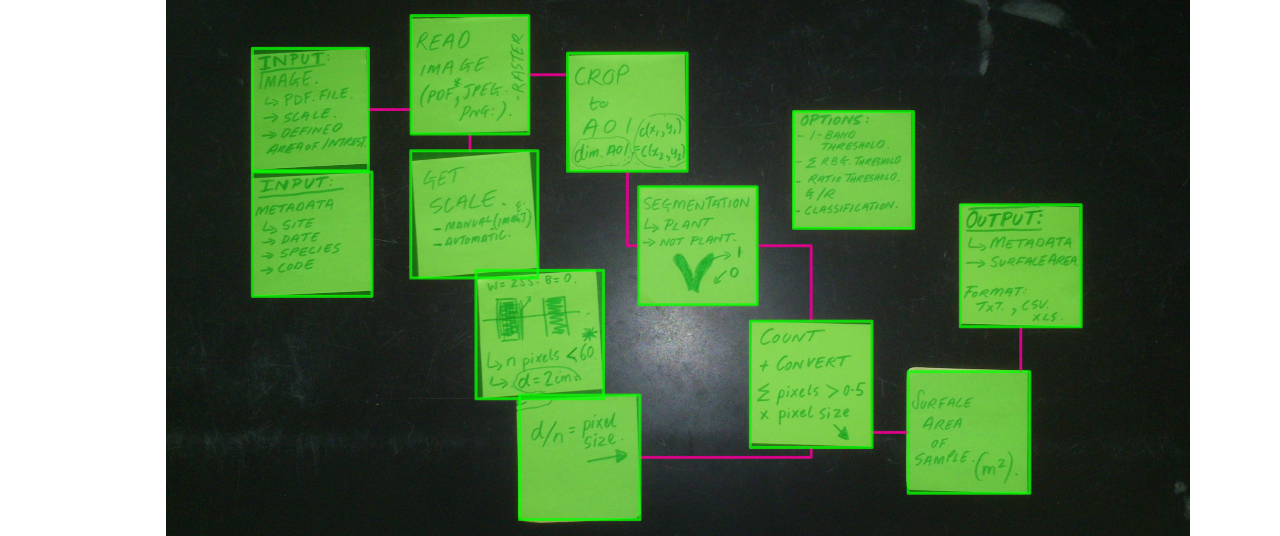 INPUT:
IMAGE.
↳ PDF. FILE.
→ SCALE.
→ DEFINED
AREA OF INTREST.
INPUT:
METADATA
↳ SITE
→ DATE
→ SPECIES
→ CODE
READ
IMAGE
(PDF*, JPEG.
PNG.).
-RASTER
GET
SCALE.
- MANUAL (IMAGE
- AUTOMATIC.
W = 255. B = 0.
*
↳ n pixels < 60
↳ d = 2cm
d/n = pixel
size.
→
CROP
to
AOI
dim. AOI =
c(x₁,y₁)
c(x₂,y₂)
SEGMENTATION
↳ PLANT
→ NOT PLANT.
→ 1
0
OPTIONS:
- 1-BAND
THRESHOLD.
- Σ RBG. THRESHOLD
- RATIO THRESHOLD.
G/R
- CLASSIFICATION.
COUNT
+ CONVERT
Σ pixels > 0.5
x pixel size
SURFACE
AREA
OF
SAMPLE. (m²).
OUTPUT:
↳ METADATA
→ SURFACE AREA
FORMAT:
TXT., CSV.
XLS.